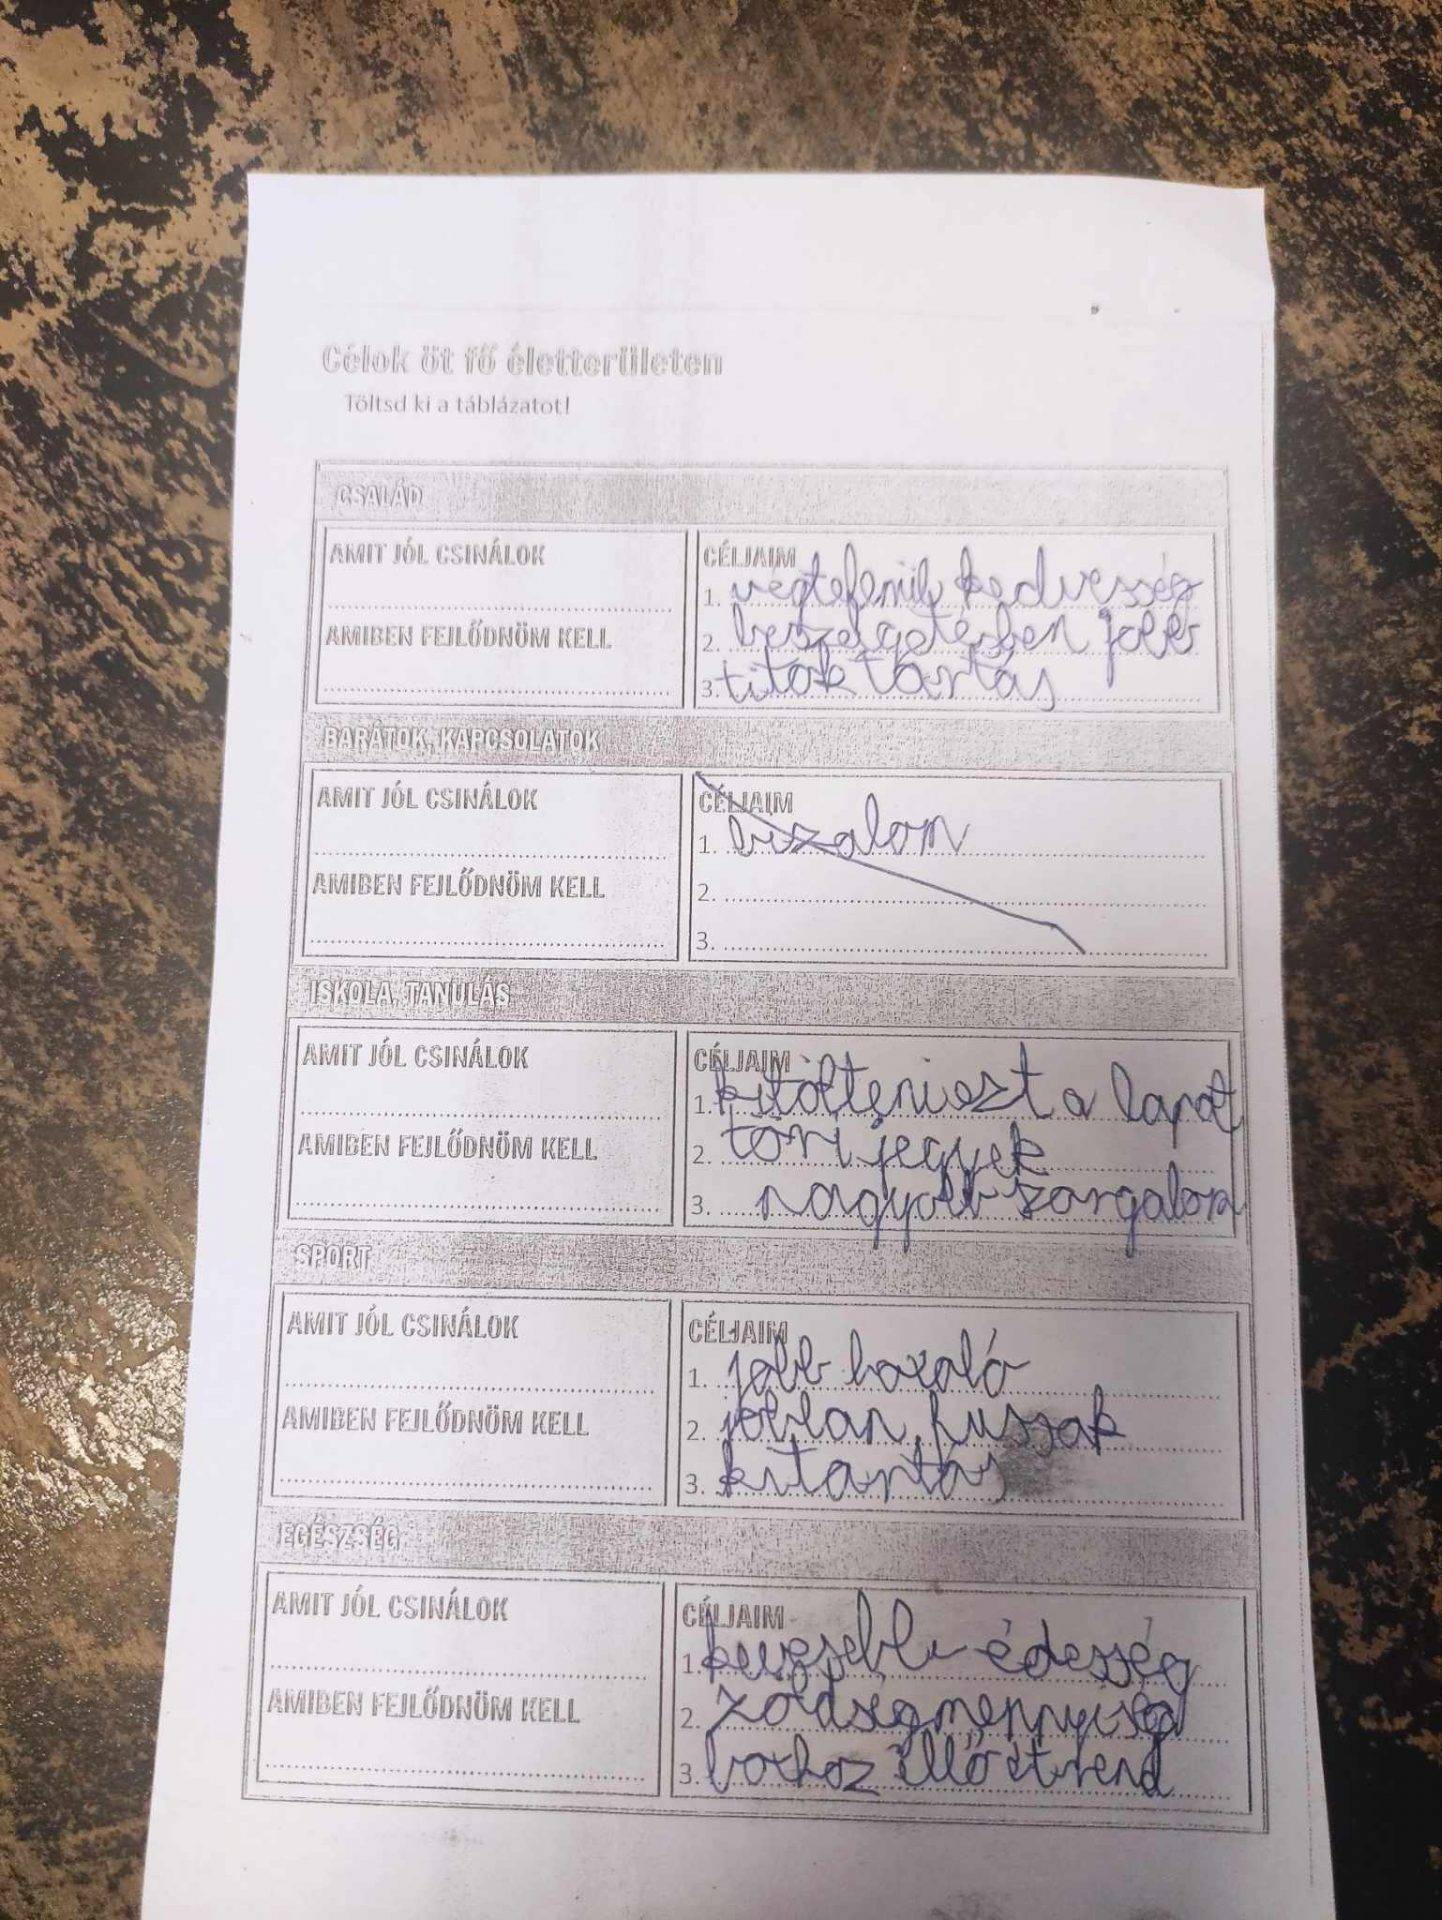 Célok öt fő életterületen
Töltsd ki a táblázatot!
CSALÁD
AMIT JÓL CSINÁLOK
AMIBEN FEJLŐDNÖM KELL
CÉLJAIM
1. végtelenül kedvesség
2. beszélgetésben jobb
3. titoktartás
BARÁTOK, KAPCSOLATOK
AMIT JÓL CSINÁLOK
AMIBEN FEJLŐDNÖM KELL
CÉLJAIM
1. bizalom
2.
3.
ISKOLA, TANULÁS
AMIT JÓL CSINÁLOK
AMIBEN FEJLŐDNÖM KELL
CÉLJAIM
1. kitölteni ezt a lapot
2. töri jegyek
3. nagyobb szorgalom
SPORT
AMIT JÓL CSINÁLOK
AMIBEN FEJLŐDNÖM KELL
CÉLJAIM
1. jobb boxoló
2. jobban fussak
3. kitartás
EGÉSZSÉG
AMIT JÓL CSINÁLOK
AMIBEN FEJLŐDNÖM KELL
CÉLJAIM
1. kevesebb édesség
2. zöldségmennyiség
3. boxhoz illő étrend